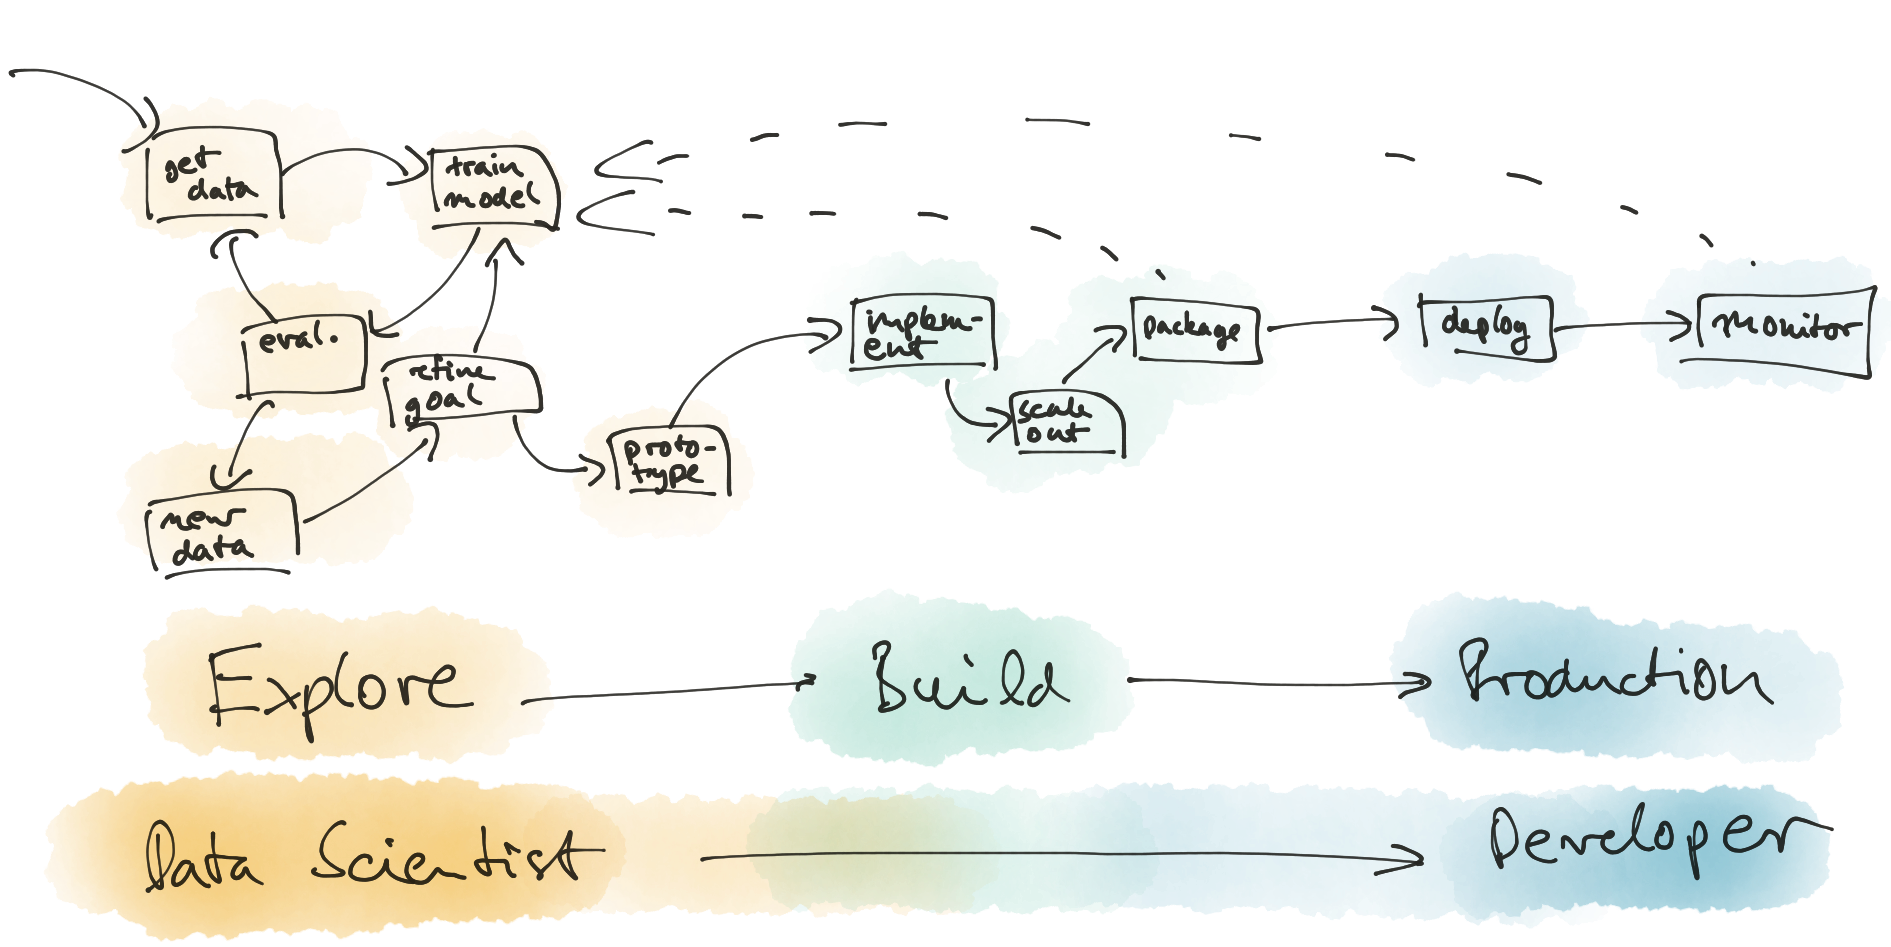 get
data
train
model
eval.
refine
goal
new
data
proto-
type
implem-
ent
scale
out
package
deploy
monitor
Explore
Build
Production
Data Scientist
Developer